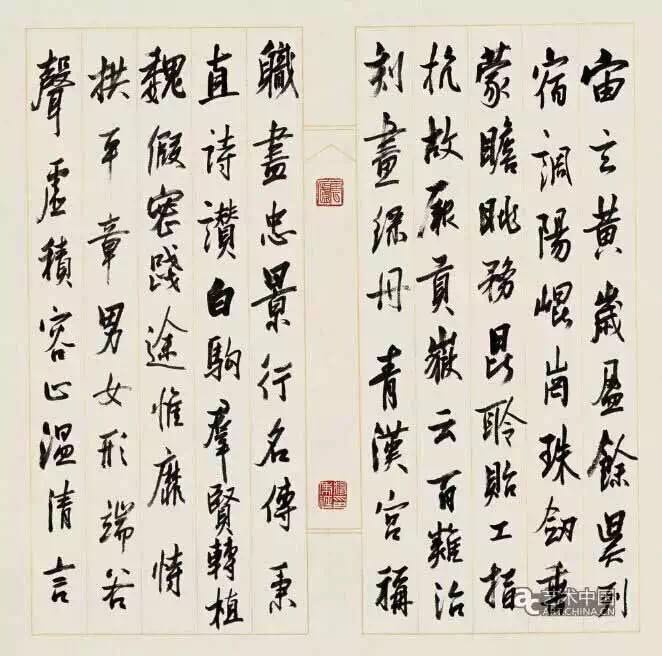 宙玄黄歲盈餘昃列
宿調陽崐崗珠劍
蒙瞻眺務昆聆貽工指
杭故厥貢嶽云百雞治
刻畫綵丹青漢宮稱
職盡忠景行名傳秉
直詩讚白駒羣賢轉植
魏假密踐途惟靡恃
拱平章男女形端谷
聲虛積容止温清言
艺术中国
ARTCHINA.CN